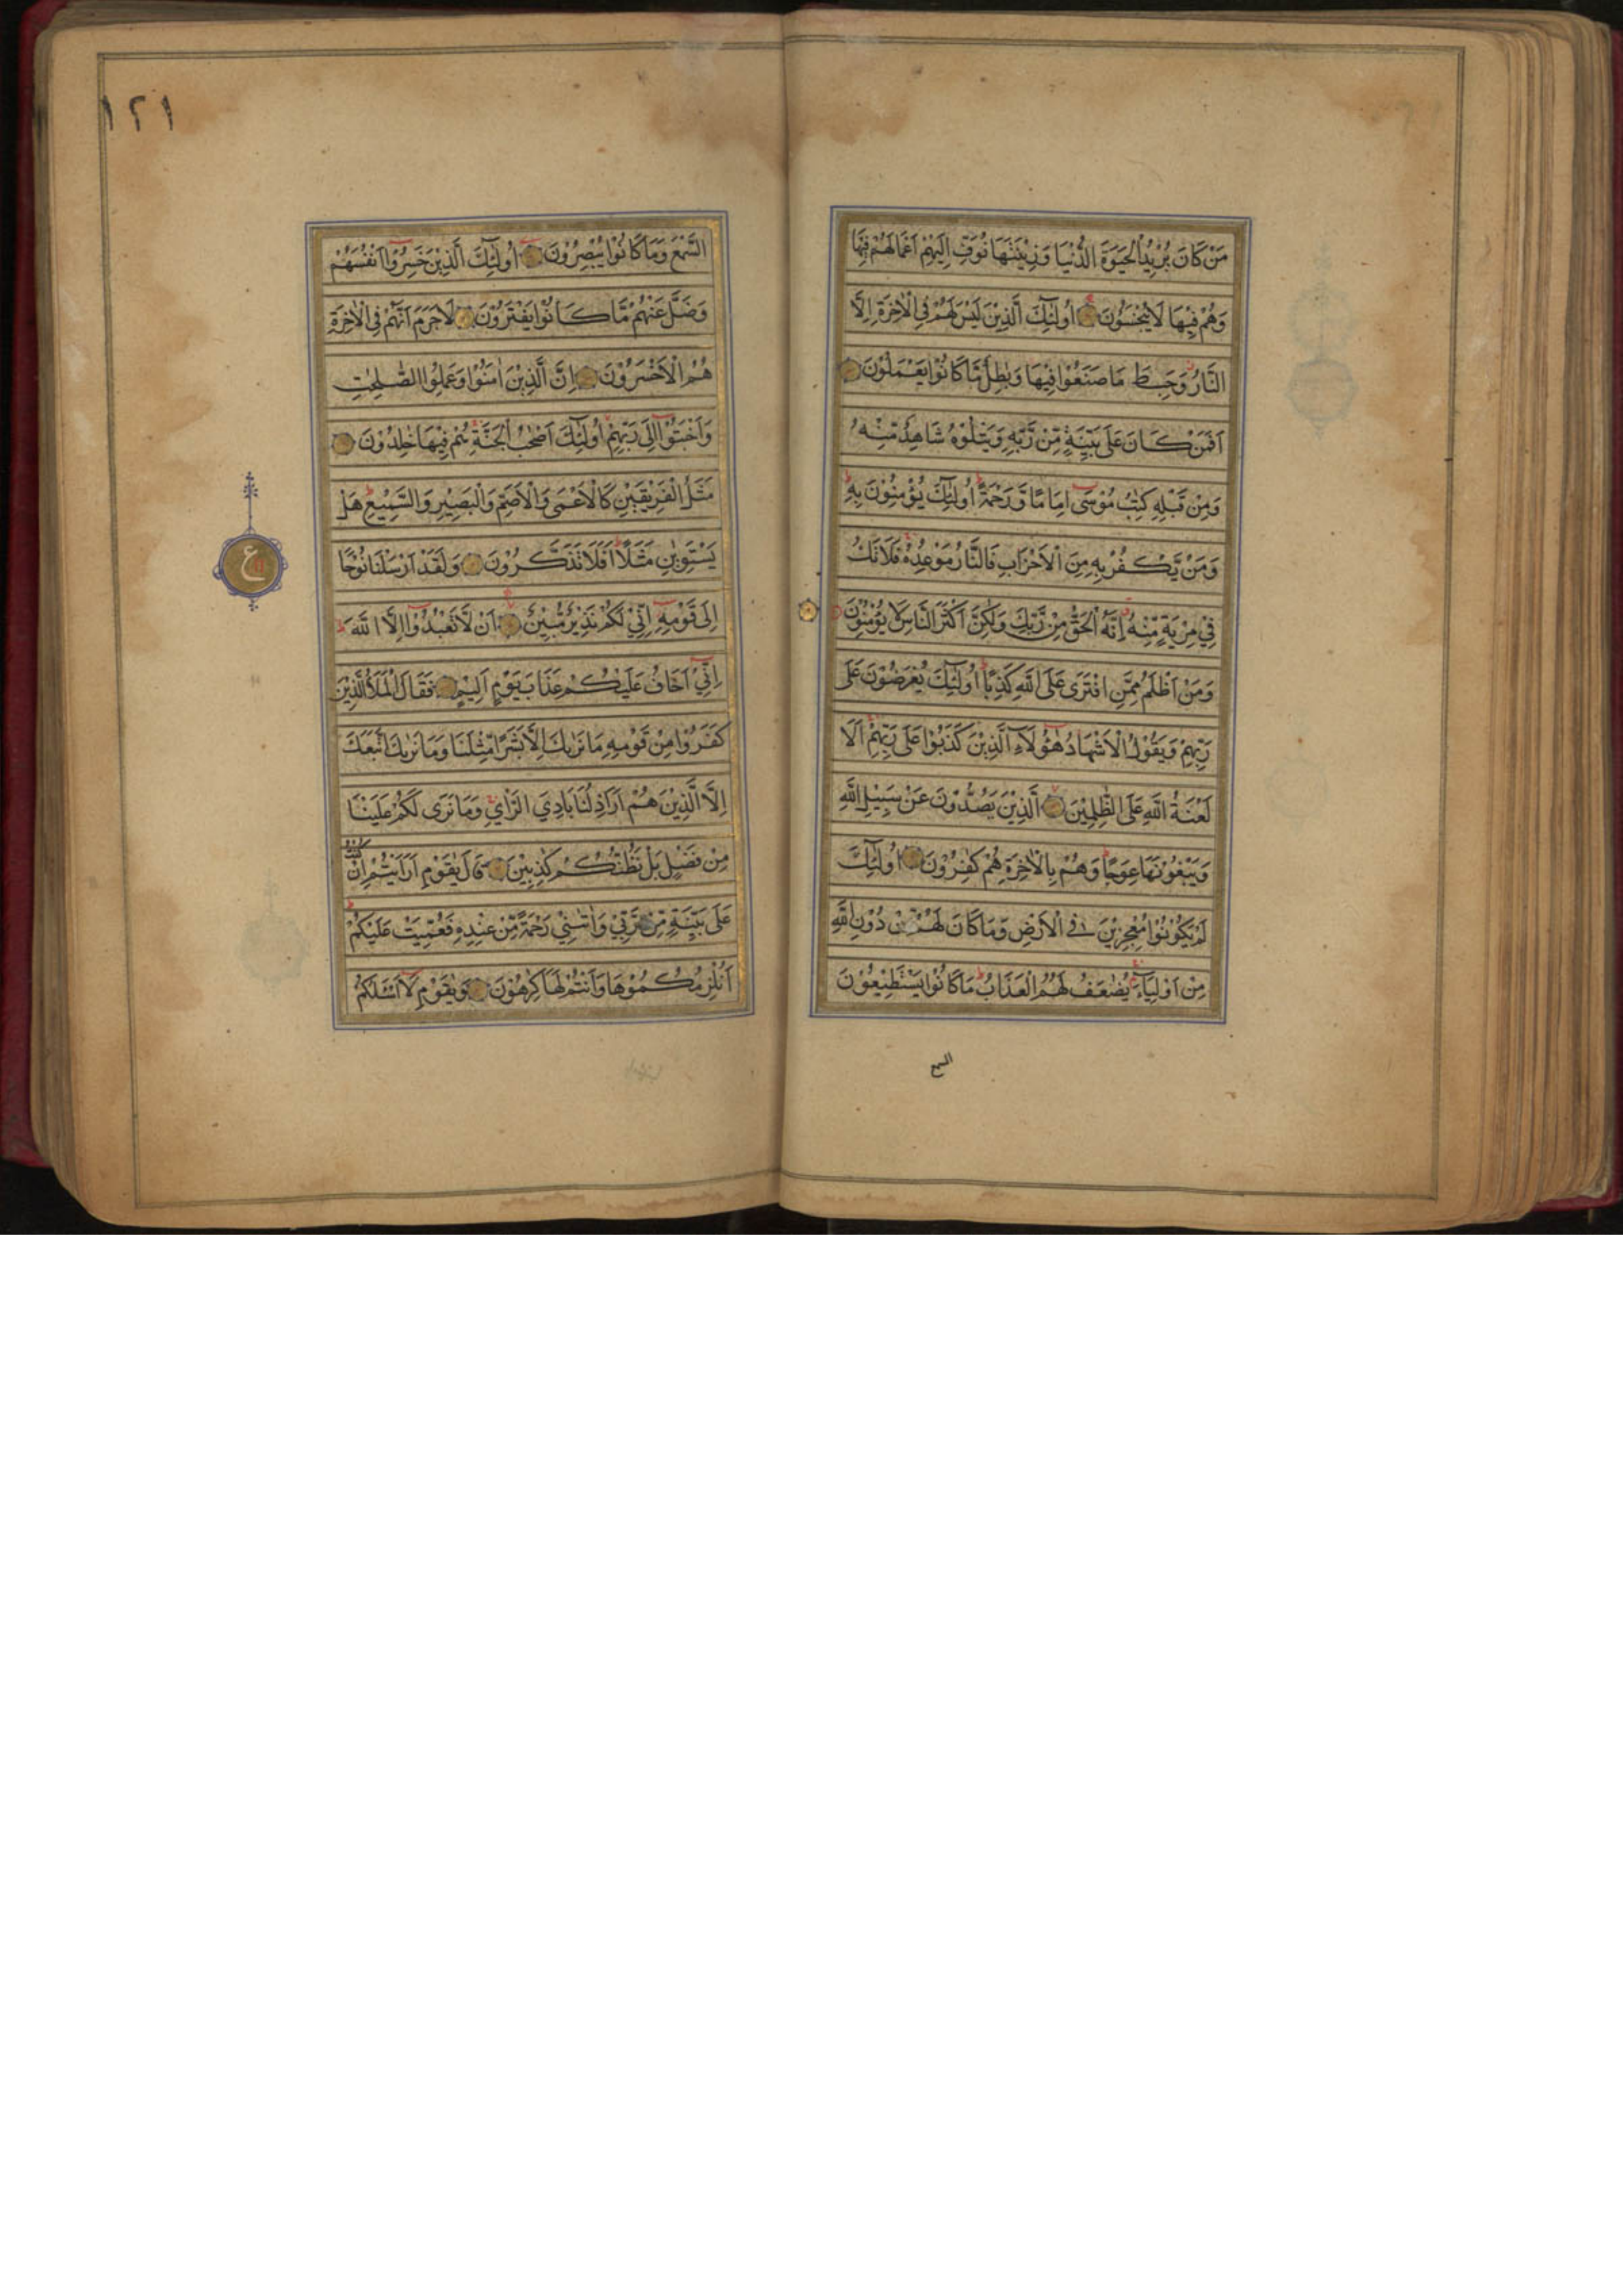 مَنْ كَانَ يُرِيْدُ الْحَيٰوةَ الدُّنْيَا وَزِيْنَتَهَا نُوَفِّ اِلَيْهِمْ اَعْمَالَهُمْ فِيْهَا
وَهُمْ فِيْهَا لَا يُبْخَسُوْنَ اُولٰٓئِكَ الَّذِيْنَ لَيْسَ لَهُمْ فِي الْاٰخِرَةِ اِلَّا
النَّارُ وَحَبِطَ مَا صَنَعُوْا فِيْهَا وَبٰطِلٌ مَّا كَانُوْا يَعْمَلُوْنَ
اَفَمَنْ كَانَ عَلٰى بَيِّنَةٍ مِّنْ رَّبِّهٖ وَيَتْلُوْهُ شَاهِدٌ مِّنْهُ
وَمِنْ قَبْلِهٖ كِتٰبُ مُوْسٰٓى اِمَامًا وَّرَحْمَةً اُولٰٓئِكَ يُؤْمِنُوْنَ بِهٖ
وَمَنْ يَّكْفُرْ بِهٖ مِنَ الْاَحْزَابِ فَالنَّارُ مَوْعِدُهٗ فَلَا تَكُ
فِيْ مِرْيَةٍ مِّنْهُ اِنَّهُ الْحَقُّ مِنْ رَّبِّكَ وَلٰكِنَّ اَكْثَرَ النَّاسِ لَا يُؤْمِنُوْنَ
وَمَنْ اَظْلَمُ مِمَّنِ افْتَرٰى عَلَى اللّٰهِ كَذِبًا اُولٰٓئِكَ يُعْرَضُوْنَ عَلٰى
رَبِّهِمْ وَيَقُوْلُ الْاَشْهَادُ هٰٓؤُلَآءِ الَّذِيْنَ كَذَبُوْا عَلٰى رَبِّهِمْ اَلَا
لَعْنَةُ اللّٰهِ عَلَى الظّٰلِمِيْنَ الَّذِيْنَ يَصُدُّوْنَ عَنْ سَبِيْلِ اللّٰهِ
وَيَبْغُوْنَهَا عِوَجًا وَهُمْ بِالْاٰخِرَةِ هُمْ كٰفِرُوْنَ اُولٰٓئِكَ
لَمْ يَكُوْنُوْا مُعْجِزِيْنَ فِي الْاَرْضِ وَمَا كَانَ لَهُمْ مِّنْ دُوْنِ اللّٰهِ
مِنْ اَوْلِيَآءَ يُضٰعَفُ لَهُمُ الْعَذَابُ مَا كَانُوْا يَسْتَطِيْعُوْنَ
السمع
١٢١
السَّمْعَ وَمَا كَانُوْا يُبْصِرُوْنَ اُولٰٓئِكَ الَّذِيْنَ خَسِرُوْٓا اَنْفُسَهُمْ
وَضَلَّ عَنْهُمْ مَّا كَانُوْا يَفْتَرُوْنَ لَا جَرَمَ اَنَّهُمْ فِي الْاٰخِرَةِ
هُمُ الْاَخْسَرُوْنَ اِنَّ الَّذِيْنَ اٰمَنُوْا وَعَمِلُوا الصّٰلِحٰتِ
وَاَخْبَتُوْٓا اِلٰى رَبِّهِمْ اُولٰٓئِكَ اَصْحٰبُ الْجَنَّةِ هُمْ فِيْهَا خٰلِدُوْنَ
مَثَلُ الْفَرِيْقَيْنِ كَالْاَعْمٰى وَالْاَصَمِّ وَالْبَصِيْرِ وَالسَّمِيْعِ هَلْ
يَسْتَوِيٰنِ مَثَلًا اَفَلَا تَذَكَّرُوْنَ وَلَقَدْ اَرْسَلْنَا نُوْحًا
ع
اِلٰى قَوْمِهٖٓ اِنِّيْ لَكُمْ نَذِيْرٌ مُّبِيْنٌ اَنْ لَّا تَعْبُدُوْٓا اِلَّا اللّٰهَ
اِنِّيْٓ اَخَافُ عَلَيْكُمْ عَذَابَ يَوْمٍ اَلِيْمٍ فَقَالَ الْمَلَاُ الَّذِيْنَ
كَفَرُوْا مِنْ قَوْمِهٖ مَا نَرٰىكَ اِلَّا بَشَرًا مِّثْلَنَا وَمَا نَرٰىكَ اتَّبَعَكَ
اِلَّا الَّذِيْنَ هُمْ اَرَاذِلُنَا بَادِيَ الرَّاْيِ وَمَا نَرٰى لَكُمْ عَلَيْنَا
مِنْ فَضْلٍ بَلْ نَظُنُّكُمْ كٰذِبِيْنَ قَالَ يٰقَوْمِ اَرَاَيْتُمْ اِنْ كُنْتُ
عَلٰى بَيِّنَةٍ مِّنْ رَّبِّيْ وَاٰتٰىنِيْ رَحْمَةً مِّنْ عِنْدِهٖ فَعُمِّيَتْ عَلَيْكُمْ
اَنُلْزِمُكُمُوْهَا وَاَنْتُمْ لَهَا كٰرِهُوْنَ وَيٰقَوْمِ لَآ اَسْـَٔلُكُمْ